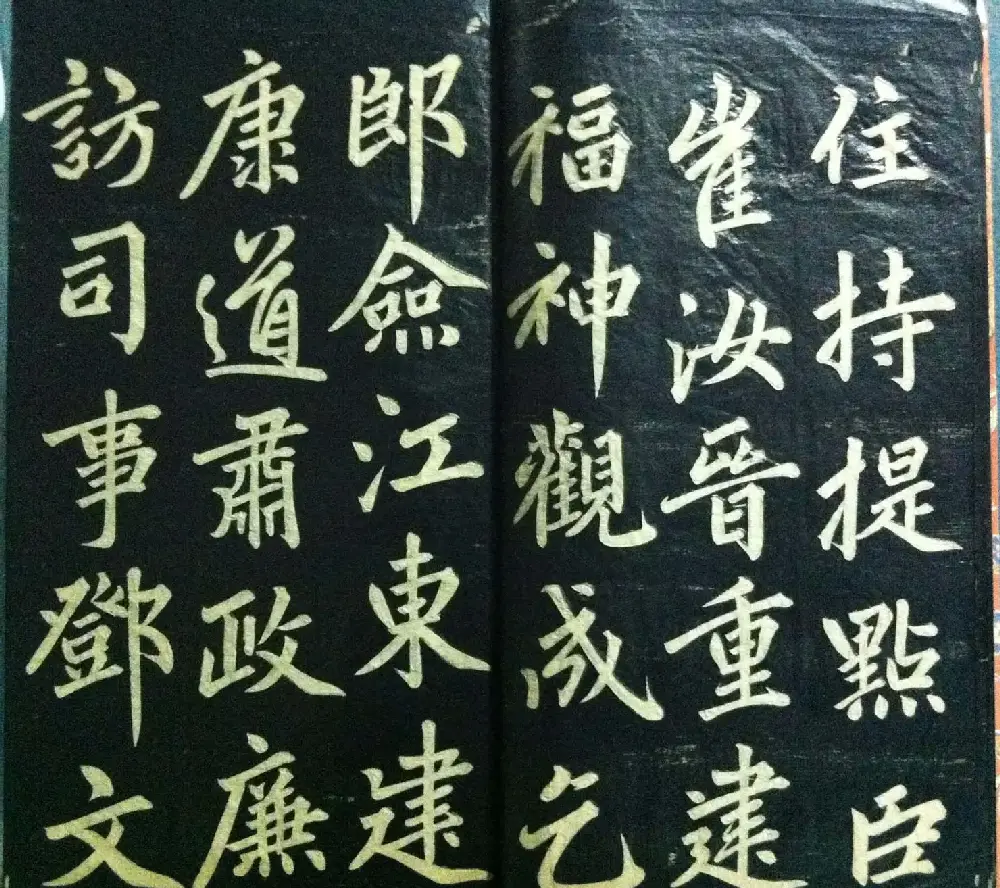 住持提點臣
崔汝晉重建
福神觀成乞
郎僉江東建
康道肅政廉
訪司事鄧文